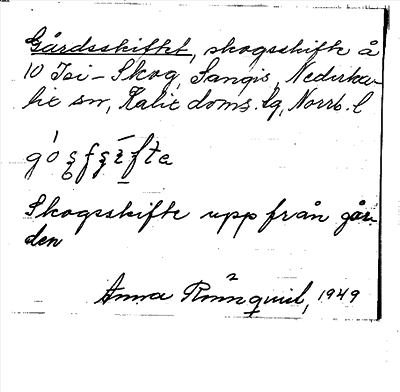 Gårdsskiftet, skogsskifte å
10 Isi-Skog, Sangis, Nederka-
lix sn, Kalix doms. lg, Norrb. l
Skogsskifte upp från går-
den
Anna Rönnquist, 1949